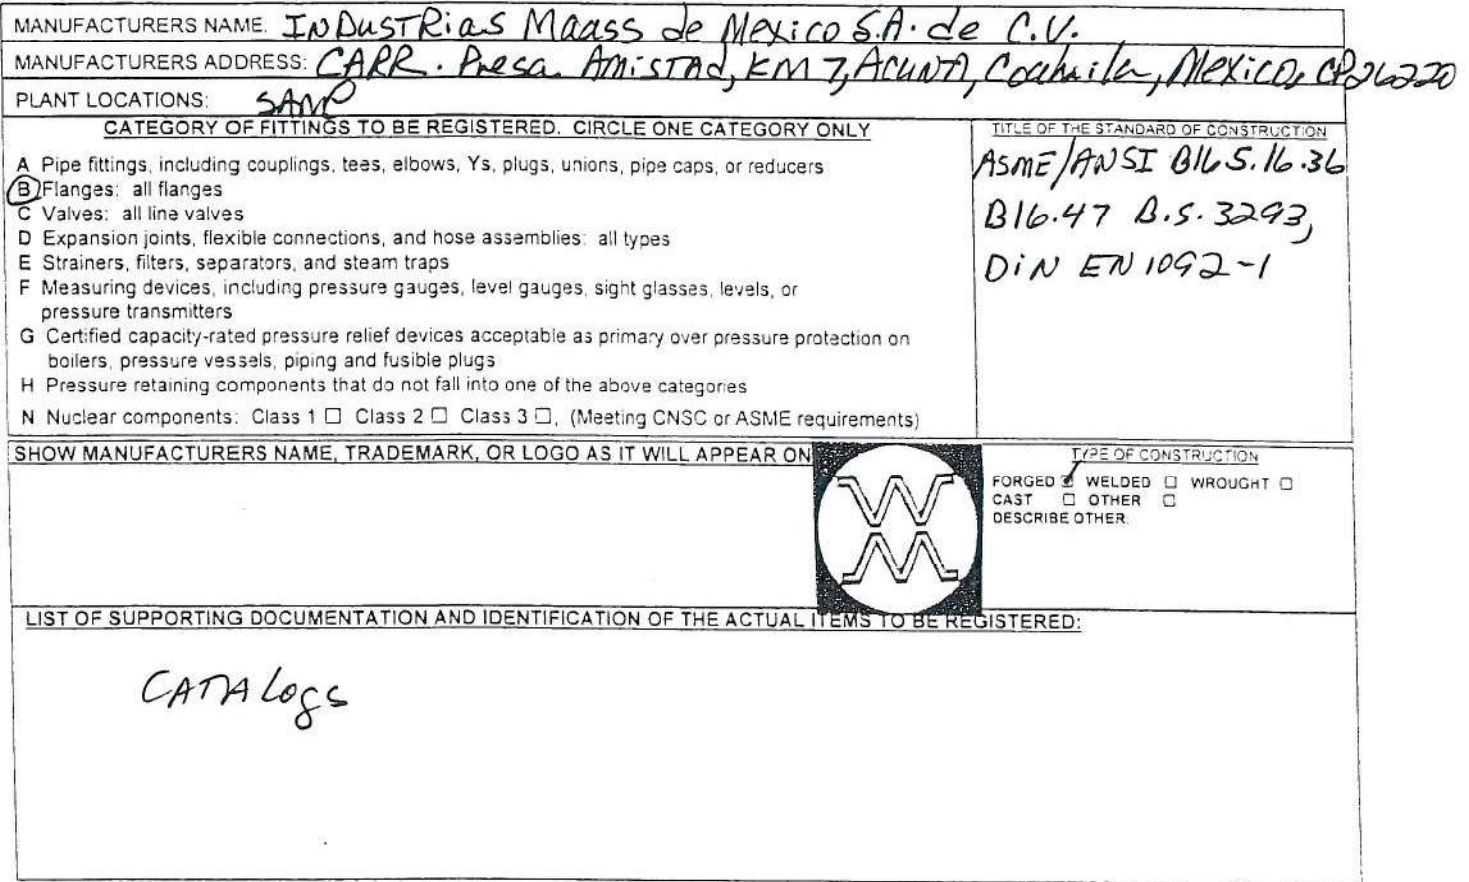 MANUFACTURERS NAME. INDUSTRIAS Maass de Mexico S.A. de C.V.
MANUFACTURERS ADDRESS: CARR. Presa Amistad, KM 7, ACUNA, Coahuila, Mexico, CP26220
PLANT LOCATIONS: SAME
CATEGORY OF FITTINGS TO BE REGISTERED. CIRCLE ONE CATEGORY ONLY
A Pipe fittings, including couplings, tees, elbows, Ys, plugs, unions, pipe caps, or reducers
B Flanges: all flanges
C Valves: all line valves
D Expansion joints, flexible connections, and hose assemblies: all types
E Strainers, filters, separators, and steam traps
F Measuring devices, including pressure gauges, level gauges, sight glasses, levels, or
pressure transmitters
G Certified capacity-rated pressure relief devices acceptable as primary over pressure protection on
boilers, pressure vessels, piping and fusible plugs
H Pressure retaining components that do not fall into one of the above categories
N Nuclear components: Class 1 ☐ Class 2 ☐ Class 3 ☐, (Meeting CNSC or ASME requirements)
TITLE OF THE STANDARD OF CONSTRUCTION
ASME/ANSI B16 5.16.36
B16.47 B.S. 3293,
DIN EN 1092-1
SHOW MANUFACTURERS NAME, TRADEMARK, OR LOGO AS IT WILL APPEAR ON
W
M
TYPE OF CONSTRUCTION
FORGED ☑ WELDED ☐ WROUGHT ☐
CAST ☐ OTHER ☐
DESCRIBE OTHER.
LIST OF SUPPORTING DOCUMENTATION AND IDENTIFICATION OF THE ACTUAL ITEMS TO BE REGISTERED:
CATALogs